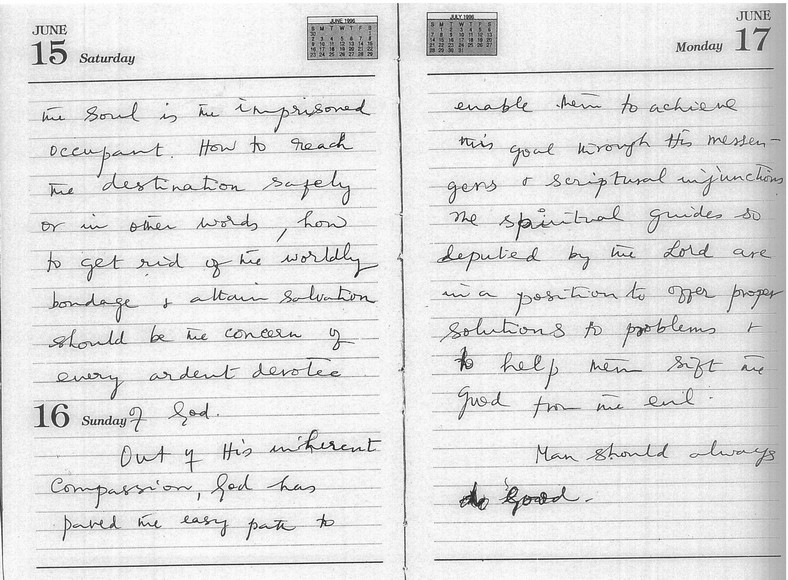 JUNE
15 Saturday
JUNE 1996
the Soul is the imprisoned
occupant. How to reach
the destination safely
or in other words, how
to get rid of the worldly
bondage & attain Salvation
should be the concern of
every ardent devotee
16 Sunday of God.
Out of His inherent
Compassion, God has
paved the easy path to
JULY 1996
JUNE
Monday 17
enable them to achieve
this goal through His messen-
gers & scriptural injunctions
The spiritual guides so
deputed by the Lord are
in a position to offer proper
solutions to problems &
to help them sift the
good from the evil.
Man should always
do good.